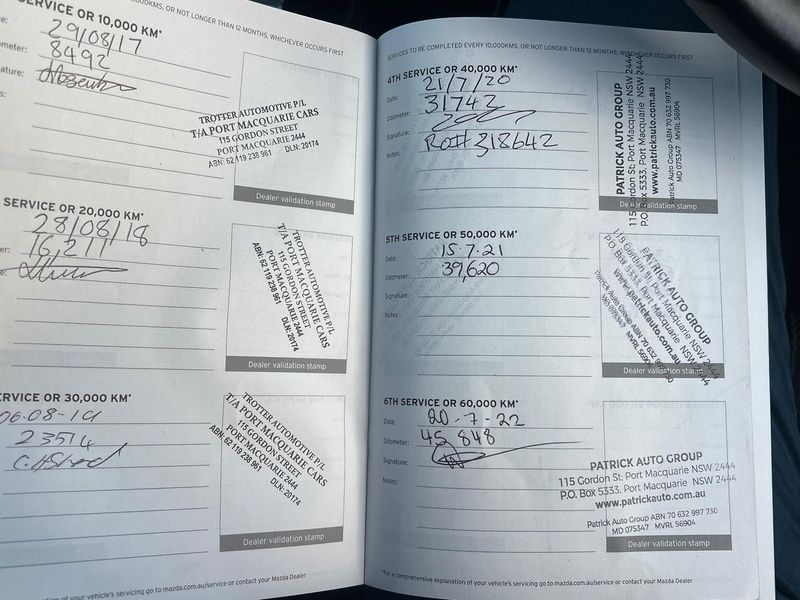 0,000KMS, OR NOT LONGER THAN 12 MONTHS, WHICHEVER OCCURS FIRST
ERVICE OR 10,000 KM*
29/08/17
ometer: 8492
ature:
TROTTER AUTOMOTIVE P/L
T/A PORT MACQUARIE CARS
115 GORDON STREET
PORT MACQUARIE 2444
ABN: 62 119 238 961 DLN: 20174
Dealer validation stamp
SERVICE OR 20,000 KM*
28/08/18
er: 16,211
TROTTER AUTOMOTIVE P/L
T/A PORT MACQUARIE CARS
115 GORDON STREET
PORT MACQUARIE 2444
ABN: 62 119 238 961 DLN: 20174
Dealer validation stamp
ERVICE OR 30,000 KM*
06-08-19
23514
TROTTER AUTOMOTIVE P/L
T/A PORT MACQUARIE CARS
115 GORDON STREET
PORT MACQUARIE 2444
ABN: 62 119 238 961 DLN: 20174
Dealer validation stamp
of your vehicle's servicing go to mazda.com.au/service or contact your Mazda Dealer
SERVICES TO BE COMPLETED EVERY 10,000KMS, OR NOT LONGER THAN 12 MONTHS, WHICHEVER OCCURS FIRST
4TH SERVICE OR 40,000 KM*
Date: 21/7/20
Odometer: 31742
Signature:
Notes: RO# 318642
PATRICK AUTO GROUP
115 Gordon St: Port Macquarie NSW 2444
P.O. Box 5333, Port Macquarie NSW 2444
www.patrickauto.com.au
Patrick Auto Group ABN 70 632 997 730
MD 075347 MVRL 56904
Dealer validation stamp
5TH SERVICE OR 50,000 KM*
Date: 15-7-21
Odometer: 39,620
Signature:
Notes:
PATRICK AUTO GROUP
115 Gordon St: Port Macquarie NSW 2444
P.O. Box 5333, Port Macquarie NSW 2444
www.patrickauto.com.au
Patrick Auto Group ABN 70 632 997 730
MD 075347 MVRL 56904
Dealer validation stamp
6TH SERVICE OR 60,000 KM*
Date: 20-7-22
Odometer: 45 848
Signature:
Notes:
PATRICK AUTO GROUP
115 Gordon St: Port Macquarie NSW 2444
P.O. Box 5333, Port Macquarie NSW 2444
www.patrickauto.com.au
Patrick Auto Group ABN 70 632 997 730
MD 075347 MVRL 56904
Dealer validation stamp
*For a comprehensive explanation of your vehicle's servicing go to mazda.com.au/service or contact your Mazda Dealer